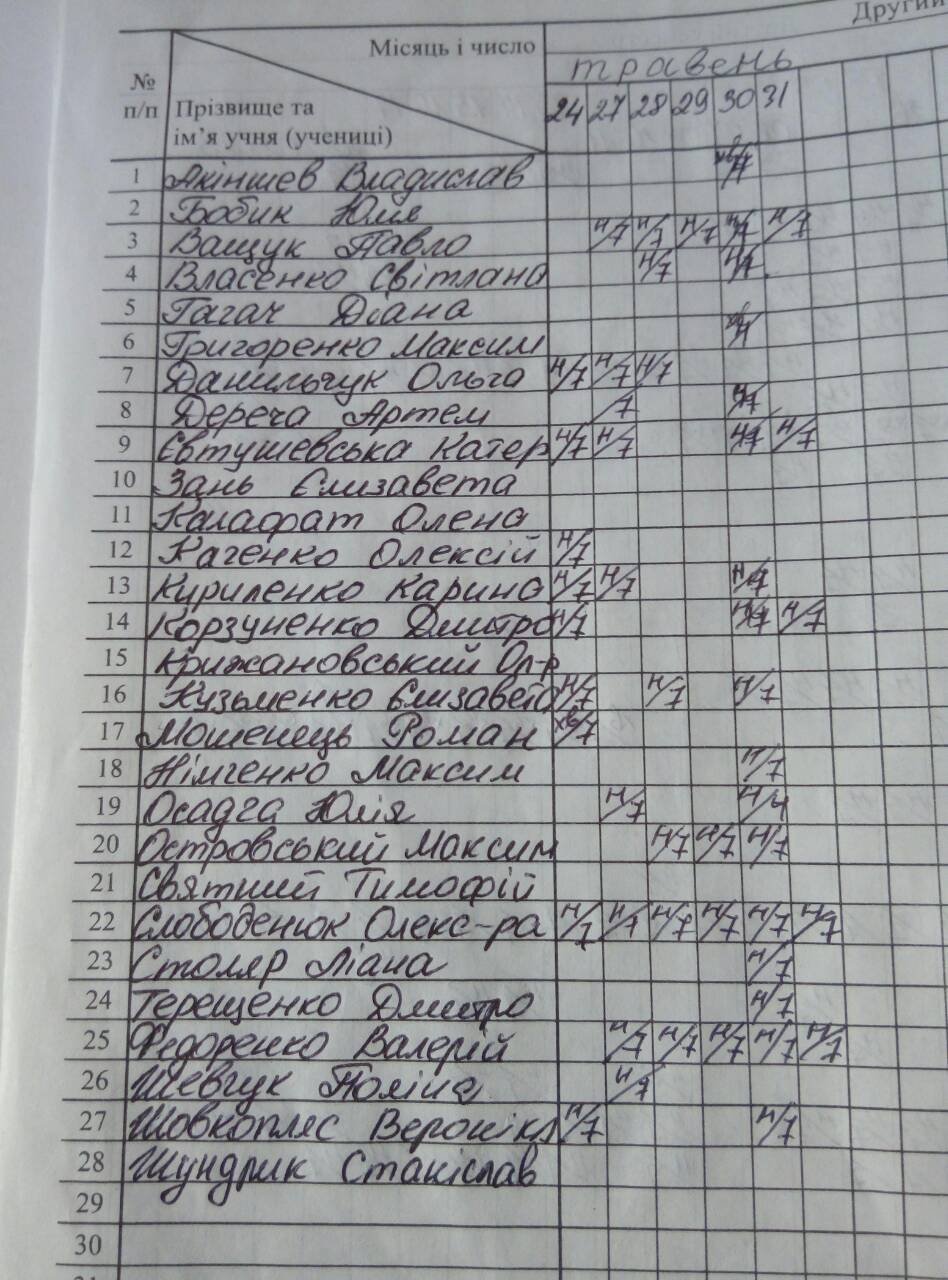 Другий
Місяць і число
№ п/п
Прізвище та ім'я учня (учениці)
травень
24 27 28 29 30 31
1 Акіншев Владислав
2 Бобик Юлія
3 Ващук Павло н/7 н/7 н/7 н/7 н/7
4 Власенко Світлана н/7 н/7
5 Гагач Діана
6 Григоренко Максим
7 Данильчук Ольга н/7 н/7 н/7
8 Дереча Артем /7
9 Євтушевська Катер н/7 н/7 н/7 н/7
10 Зань Єлизавета
11 Калафат Олена
12 Каченко Олексій н/7
13 Кириленко Карина н/7 н/7 н/7
14 Корзуненко Дмитро н/7 н/7 н/7
15 Крижановський Ол-р
16 Кузьменко Єлизавета н/7 н/7 н/7
17 Мошенець Роман хв/7
18 Німченко Максим н/7
19 Осадча Юлія н/7 н/4
20 Островський Максим н/7 н/7 н/7
21 Святний Тимофій
22 Слободенюк Олекс-ра н/7 н/7 н/7 н/7 н/7 н/7
23 Столяр Ліана н/7
24 Терещенко Дмитро н/7
25 Федоренко Валерій н/7 н/7 н/7 н/7 н/7
26 Шевчук Поліна н/7
27 Шовкопляс Веронікa н/7 н/7
28 Шундрик Станіслав
29
30